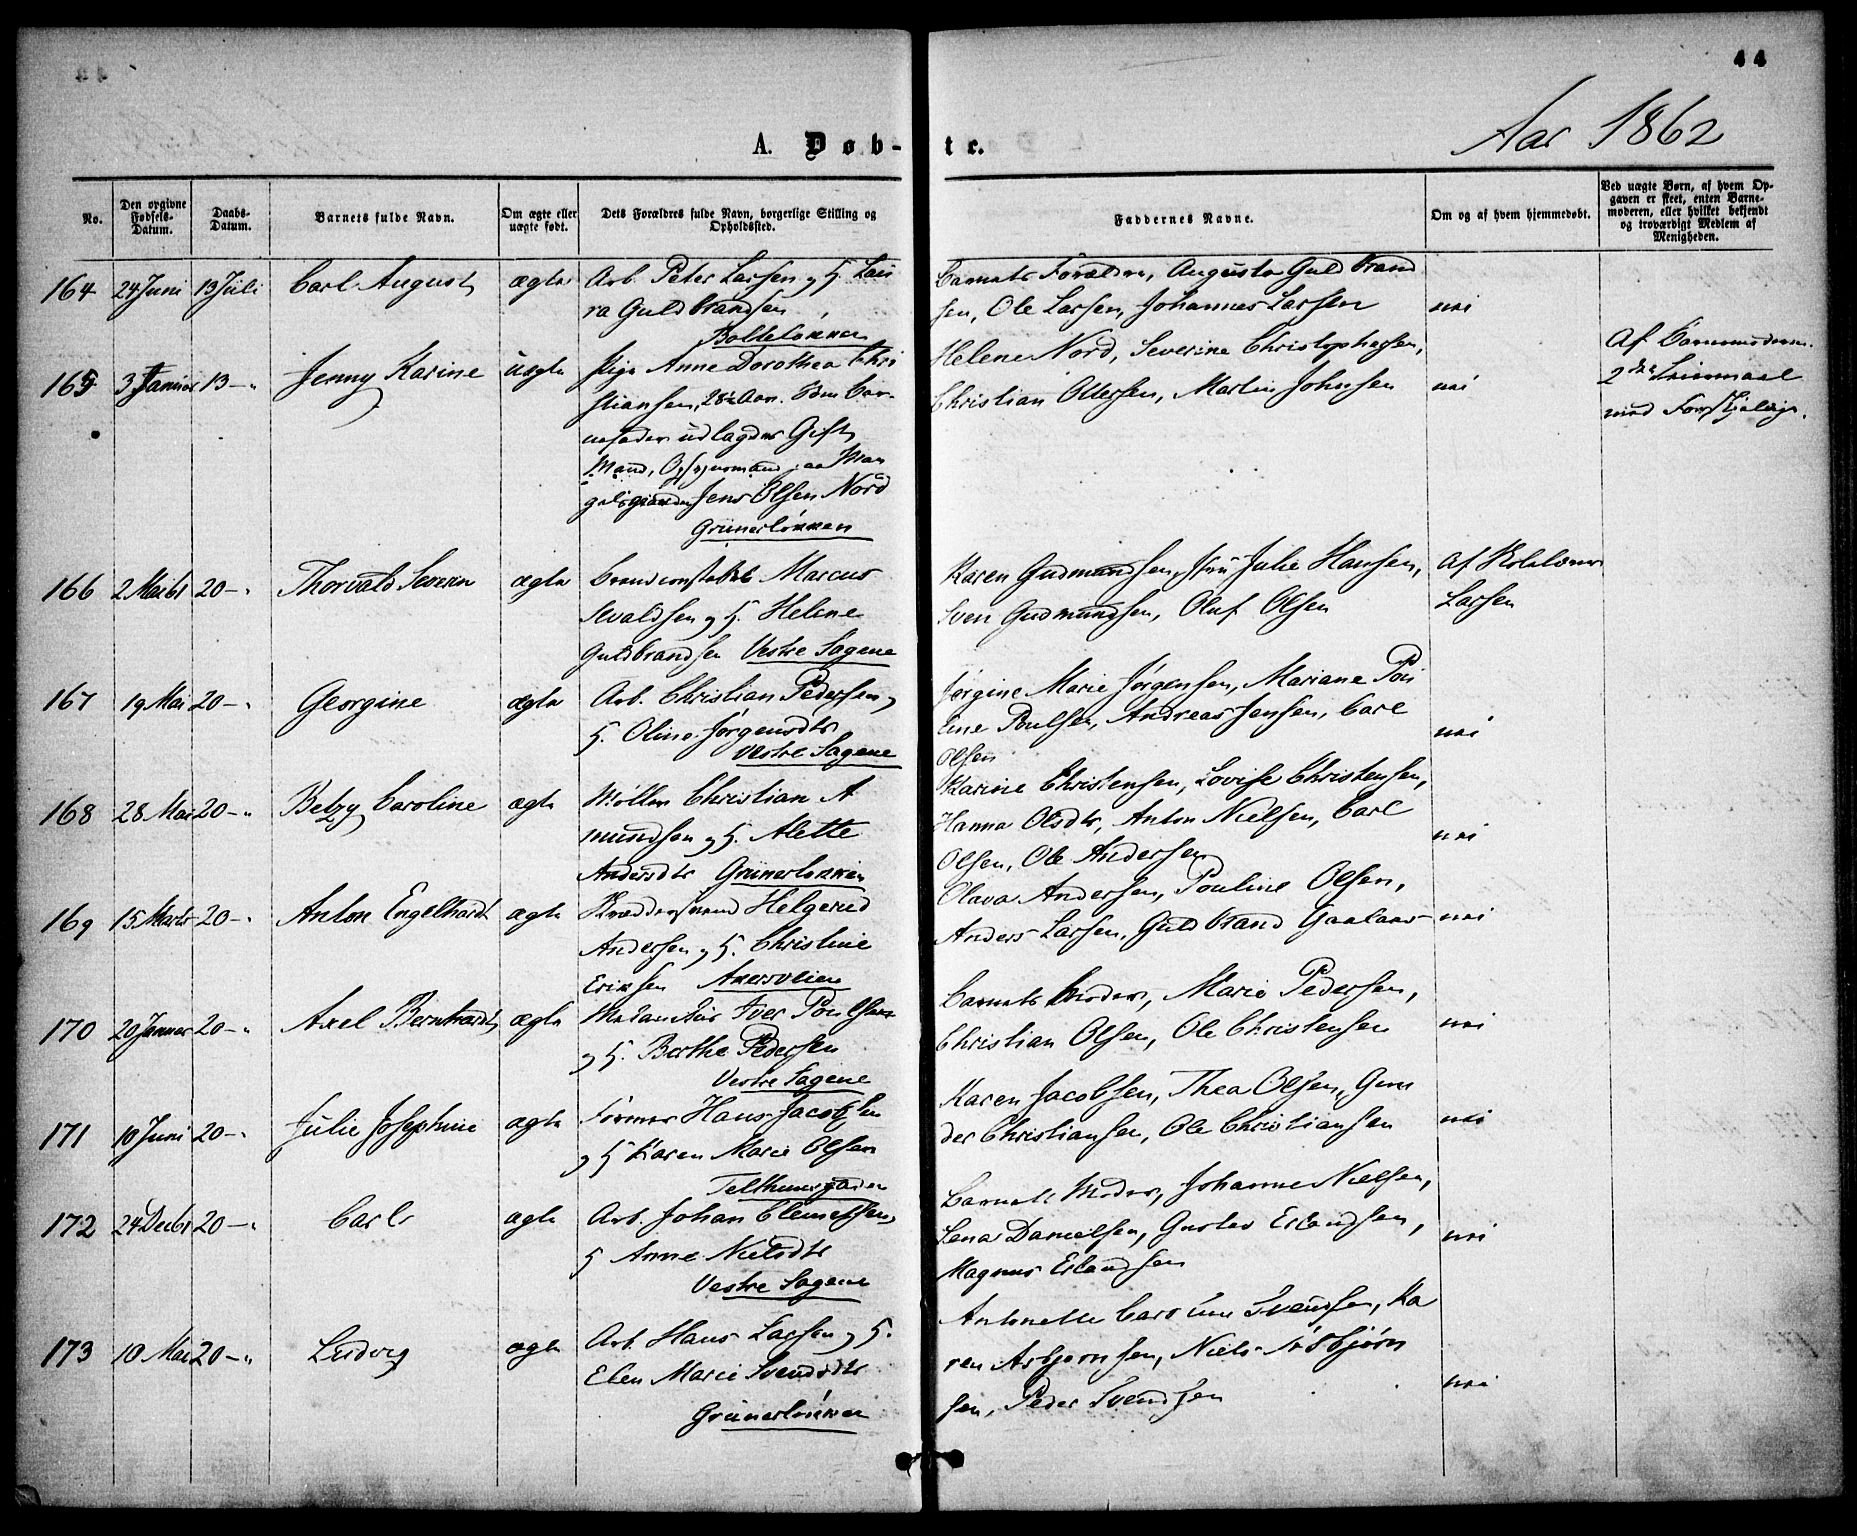 44
Aar 1862
A. Døb-
te.
No.
Den opgivne Fødsels-Datum.
Daabs-Datum.
Barnets fulde Navn.
Om ægte eller uægte født.
Dets Forældres fulde Navn, borgerlige Stilling og Opholdssted.
Faddernes Navne.
Om og af hvem hjemmedøbt.
Ved uægte Børn, af hvem Opgaven er skeet, enten Barnemoderen, eller hvilket bekjendt og troværdigt Medlem af Menigheden.
164 24 Juni 13 Juli Carl August ægte Arb. Peter Larsen og H. Lau
ra Guldbrandsen
Bolteløkken
Barnets Forældre, Augusta Guldbrand
sen, Ole Larsen, Johannes Larsen nei
165 3 Januar 13 – " Jenny Karine uægte Pige Anne Dorothea Chri
stiansen, 28½ Aar. Som Bar-
nefader udlagdes Gift
Mand, Opsynsmand paa Man
Jens Olsen Nord
Grünerløkken
Helene Nord, Severine Christophersen,
Christian Ottersen, Martin Johnsen nei
Af Barnemoderen.
2det Leiermaal
med Forskjellige.
166 2 Marts 20 – " Thorvald Severin ægte Brandconstabel Marcus
Sevaldsen og H. Helene
Guldbrandsen Vestre Sagene
Karen Gudmundsen, Fru Julie Hansen,
Sven Gudmundsen, Oluf Olsen
Af
Larsen
167 19 Mai 20 – " Georgine ægte Arb. Christian Pedersen og
H. Oline Jørgensdtr
Vestre Sagene
Jørgine Marie Jørgensen, Mariane Pou
line Poulsen, Andreas Jensen, Carl
Olsen
nei
168 28 Mai 20 – " Betzy Caroline ægte Møller Christian A
mundsen og H. Alette
Andersdtr Grünerløkken
Karine Christensen, Lovise Christensen,
Hanna Olsdtr, Anton Nielsen, Carl
Olsen, Ole Andersen
nei
169 15 Marts 20 – " Anton Engelhardt ægte Skræddersvend Helgerud
Andersen og H. Christine
Eriksen Akersveien
Olava Andersen, Pouline Olsen,
Anders Larsen, Guldbrand Gaalaas nei
170 20 Januar 20 – " Axel Bernhardt ægte Iver Poulsen
og H. Berthe Pedersen
Vestre Sagene
Barnets Moder, Marie Pedersen,
Christian Olsen, Ole Christensen nei
171 10 Juni 20 – " Julie Josephine ægte Former Hans Jacobsen
og H Karen Marie Olsen
Telthusgaden
Karen Jacobsen, Thea Olsen, Gun
der Christiansen, Ole Christiansen nei
172 24 Decbr 20 – " Carl ægte Arb. Johan Clemetsen og
H Anne Nielsdtr
Vestre Sagene
Barnets Moder, Johanne Nielsen,
Lena Danielsen, Gustav Erlandsen,
Magnus Erlandsen
nei
173 10 Mai 20 – " Ludvig ægte Arb. Hans Larsen og H.
Elen Marie Svendsdtr
Grünerløkken
Antonette Caroline Svendsen, Ka
ren Asbjørnsen, Niels Asbjørn
sen, Peder Svendsen
nei